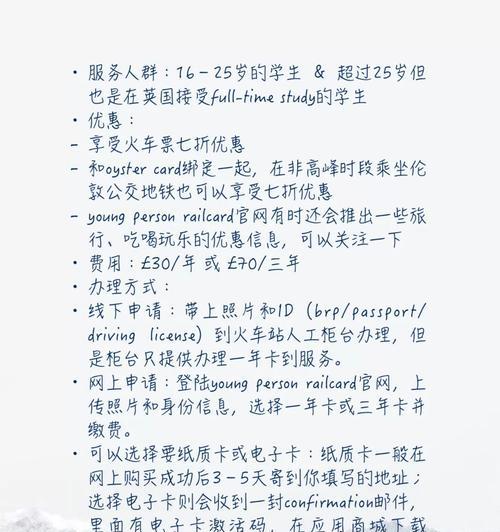 • 服务人群：16-25岁的学生 & 超过25岁但
也是在英国接受full-time study的学生
• 优惠：
- 享受火车票七折优惠
- 和oyster card绑定一起，在非高峰时段乘坐伦
敦公交地铁也可以享受七折优惠
- young person railcard官网有时还会推出一些旅
行、吃喝玩乐的优惠信息，可以关注一下
• 费用：£30/年 或 £70/三年
• 办理方式：
• 线下申请：带上照片和ID（brp/passport/
driving license）到火车站人工柜台办理，但
是柜台只提供办理一年卡到服务。
• 网上申请：登陆young person railcard官网，上
传照片和身份信息，选择一年卡或三年卡并
缴费。
• 可以选择要纸质卡或电子卡：纸质卡一般在
网上购买成功后3-5天寄到你填写的地址；
选择电子卡则会收到一封confirmation邮件，
里面有电子卡激活码，在应用商城下载